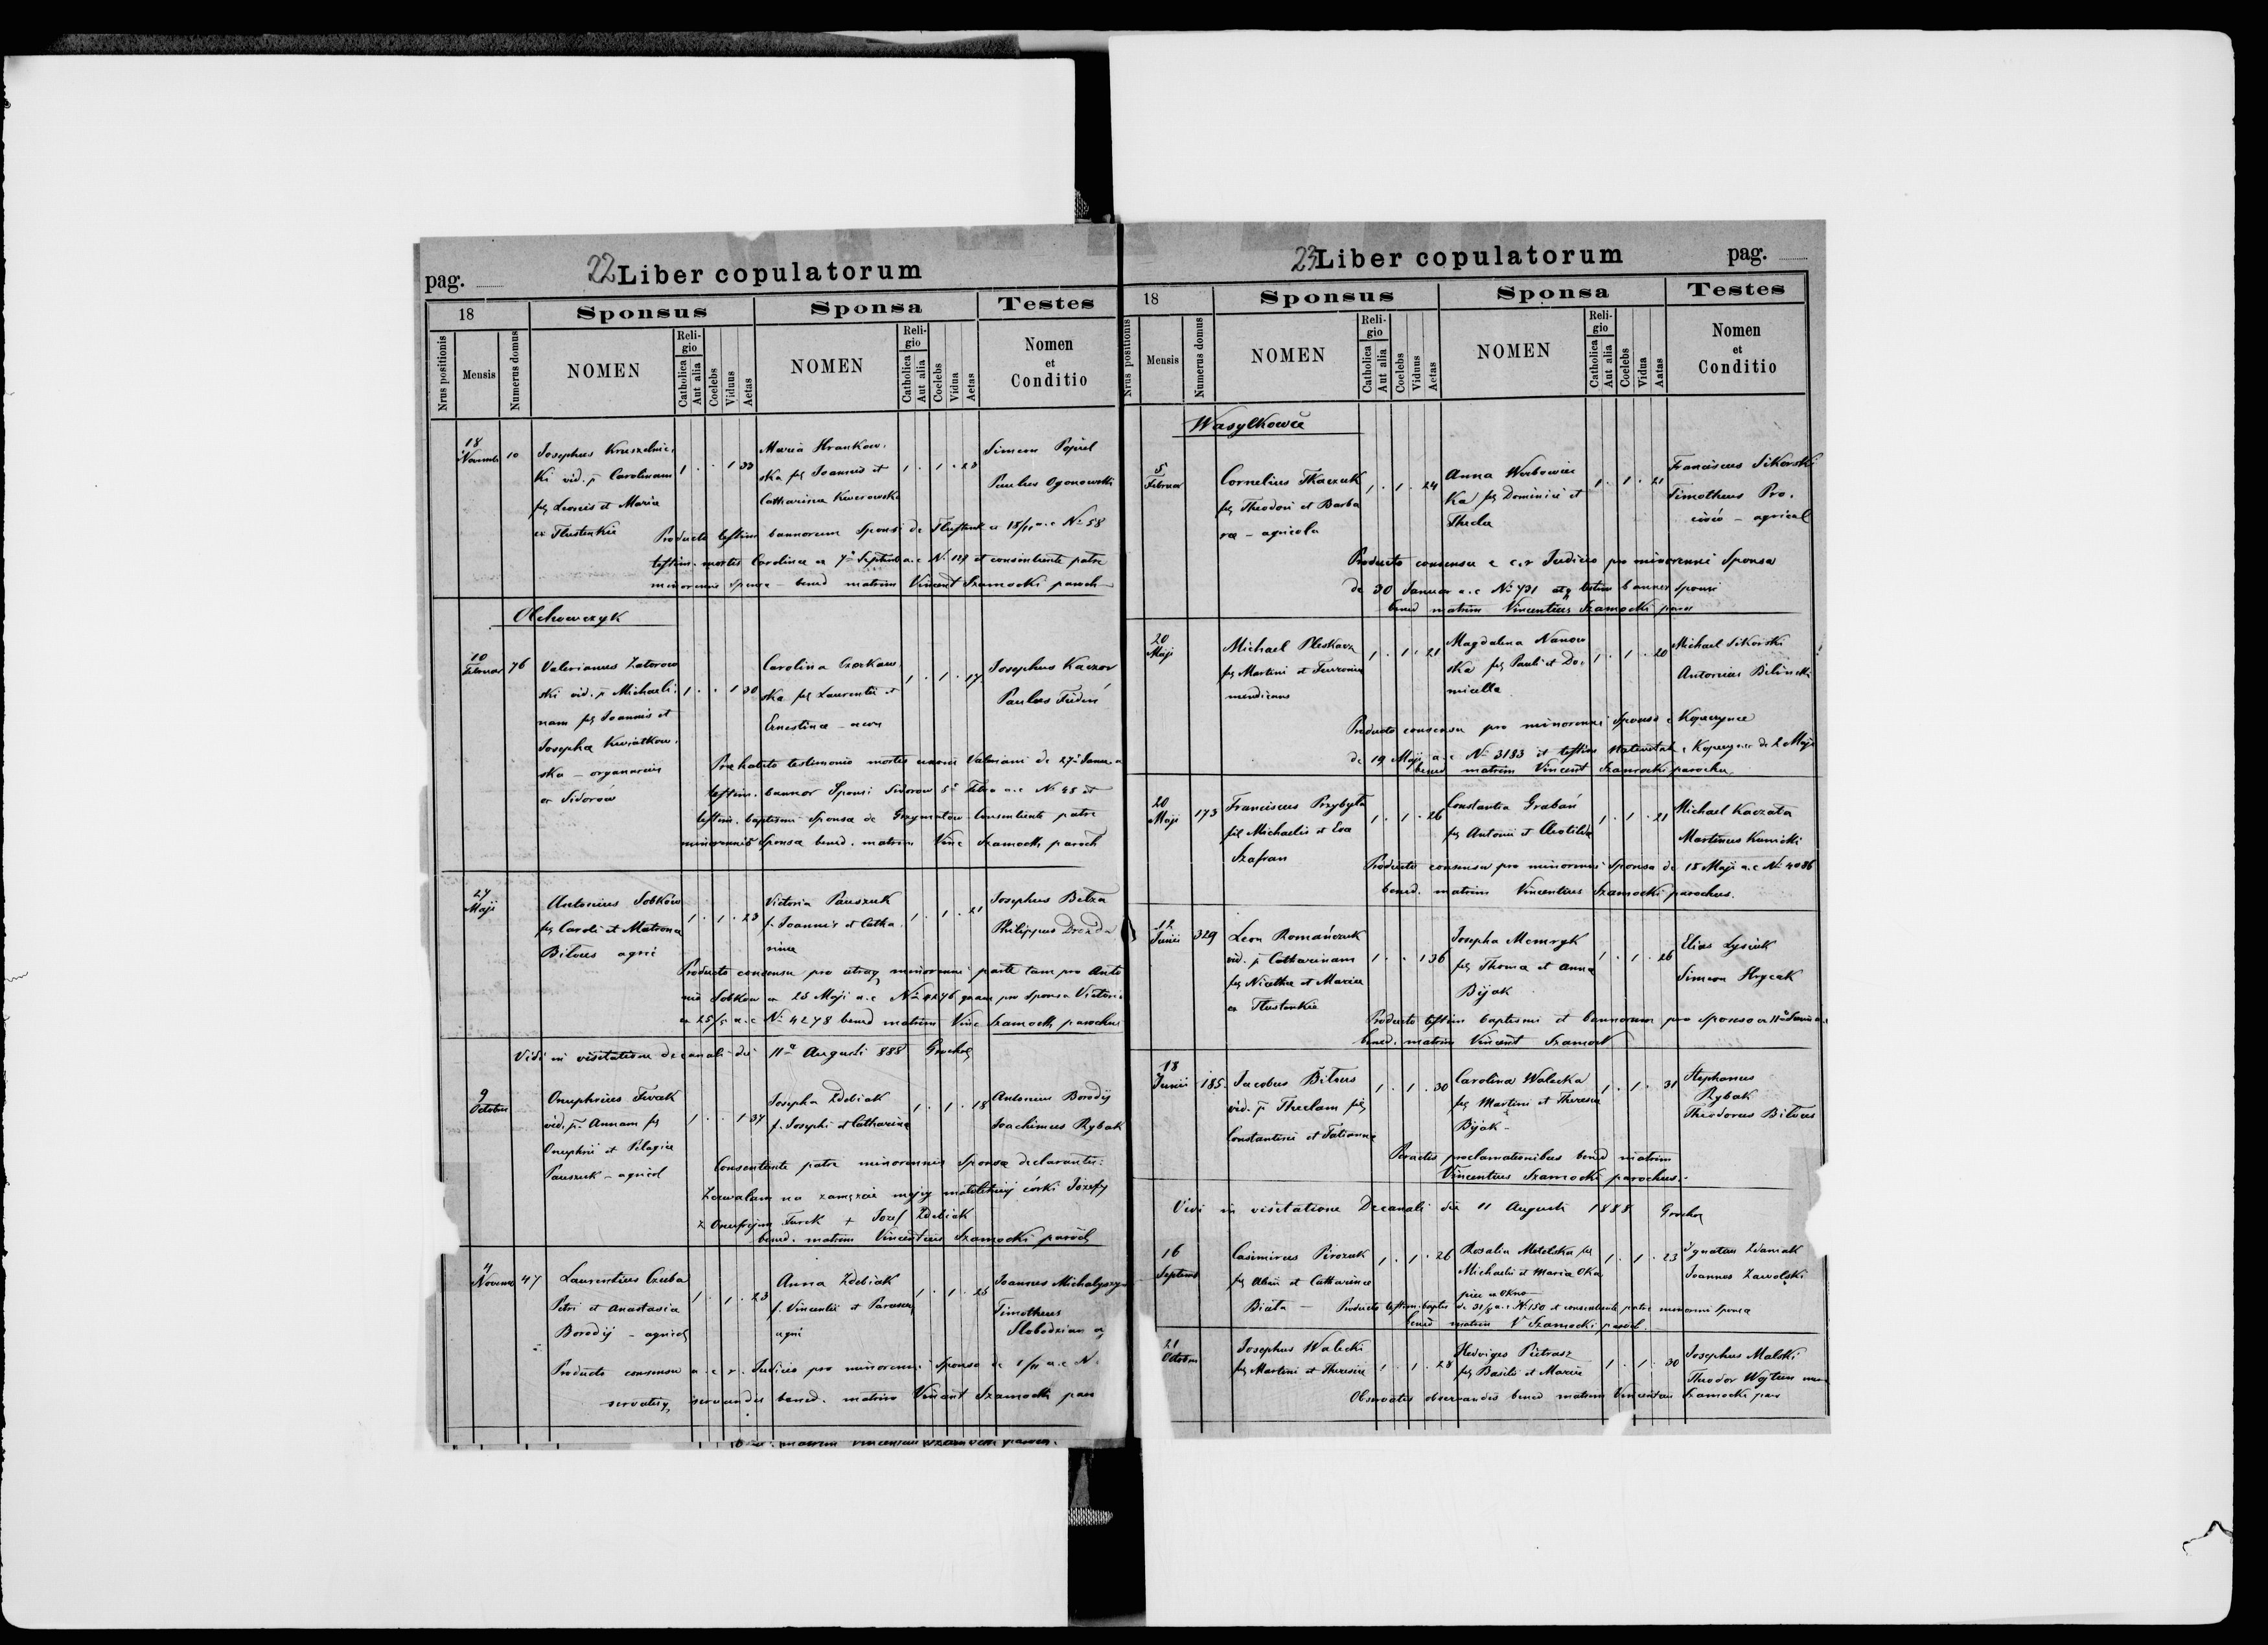 pag.
22 Liber copulatorum
18
Sponsus
Sponsa
Testes
Nrus positionis
Mensis
Numerus domus
NOMEN
Religio
Catholica
Aut alia
Coelebs
Viduus
Aetas
NOMEN
Religio
Catholica
Aut alia
Coelebs
Vidua
Aetas
Nomen
et
Conditio
18 Novemb 10 Josephus Kruszelnic
ki vid. p. Carolinam
Leonis et Maria
ex Tlustenkie
1 . . 1 33
Maria Hrankow
ska Joannis et
Catharina
1 . 1 . 23
Simeon
Paulus Ogonowski
Producto testim bannorum Sponsi de a.c N. 58
testim. mortis Carolinae a.c N. et consentiente patre
minorennis Sponsae bened matrim Vincent Szamocki paroch
Olchowczyk
10 Februar 76 Valerianus Zatorow
ski vid. p. Michali
nam Joannis et
Josepha Kwiatkow
ska – organarius
ex Sidorów
1 . . 1 30
Carolina
ska Laurentii et
Ernestina
1 . 1 . 17
Josephus Kaczor
Paulus
testimonio mortis Valeriani de 27
testim. bannor Sponsi Sidorow a.c N. 48 et
testim. baptismi Sponsae de Grzymałów Consentiente patre
minorennis Sponsae bened. matrim Vinc Szamocki paroch
27 Maji
Antonius Sobków
Caroli et Matrona
Bilous agric
1 . 1 . 23
Victoria Pauszuk
f. Joannis et Catha
rina
1 . 1 . 21
Josephus
Philippus
Producto consensu pro utraq minorenni parte tam pro Anto
nio Sobków 25 Maji a.c No 4276 quam pro Sponsa Victoria
ex 25/5 a.c No 4278 bened matrim Vinc Szamocki parochus
Vidi in visitatione decanali die 11 Augusti 888
9 Octobris
Onuphrius Turek
vid. p. Annam
Onuphrii et Pelagia
Pauszuk – agricol
1 . . 1 37
Josepha Zdebiak
f. Josephi et Catharina
1 . 1 . 18
Antonius Borodij
Joachimus Rybak
Consentiente patre minorennis Sponsae declarantis:
Zezwalam na zamęzcie mojej małoletniej córki Józefy
z Onufryjem Turek + Józef Zdebiak
bened. matrim Vincentius Szamocki paroch
4 Novem 47 Laurentius Czuba
Petri et Anastasia
Borodij – agricol
1 . 1 . 23
Anna Zdebiak
f. Vincentii et
agri
1 . 1 . 25
Joannes Michalyszyn
Timotheus
Slobodzian
Producto consensu a c r. Judicio pro minorenni Sponso de a.c N.
servatisq servandis bened. matrim Vincent Szamocki par
23 Liber copulatorum
pag.
18
Sponsus
Sponsa
Testes
Nrus positionis
Mensis
Numerus domus
NOMEN
Religio
Catholica
Aut alia
Coelebs
Viduus
Aetas
NOMEN
Religio
Catholica
Aut alia
Coelebs
Vidua
Aatas
Nomen
et
Conditio
Wasylkowce
5 Februar
Cornelius Tkaczuk
Theodori et Barba
ra – agricola
1 . 1 . 24
Anna Werbowiec
ka Dominici et
Thecla
1 . 1 . 21
Franciscus Sikorski
Timotheus Pro
– agricol
Producto consensu e c.r Judicio pro minorenni Sponsa
de 30 Januar a.c No 731 testim banner Sponsi
bened matrim Vincentius Szamocki paro
20 Maji
Michael Pleskacz
Martini et
mendicans
1 . 1 . 21
Magdalena Nanow
ska Pauli et Do
micella
1 . 1 . 20
Michael Sikorski
Antonius Bilinski
Producto consensu pro minorenni Sponso e Kopeczynce
de 19 Maji a.c No 3183 et testim Kopeczynce de 2 Maji
bened matrim Vincent Szamocki parochu
20 Maji 173 Franciscus Przybyła
fil Michaelis et Eva
Szafran
1 . 1 . 26
Constantia Grabań
Antonii et Clotilda
1 . 1 . 21
Michael Kaczała
Martinus Kunicki
Producto consensu pro minorenni Sponsa de 18 Maji a.c No 4086
bened. matrim Vincentius Szamocki parochus.
12 Junii 329 Leon Romańczuk
vid. p. Catharinam
Nicetha et Maria
ex Tlustenkie
1 . . 1 36
Josepha Memryk
Thoma et Anna
Bijak
1 . 1 . 26
Elias Lysiuk
Simeon Hrycak
Producto testim baptismi et bannorum pro sponso
bened. matrim Vincent Szamock
13 Junii 185. Jacobus Bilous
vid. p. Theclam
Constantini et Tatianna
1 . 1 . 30
Carolina Walecka
Martini et Theresia
Bijak –
1 . 1 . 31
Stephanus
Rybak
Theodorus Bilous
Peractis proclamationibus bened matrim
Vincentius Szamocki parochus.
Vidi in visitatione Decanali die 11 Augusti 1888
16 Septemb
Casimirus Pirozuk
et Catharina
Biała –
1 . 1 . 26
Rosalia Metelska
Michaelis et Maria Oka
piec ex Okno
1 . 1 . 23
Ignatius Zdaniak
Joannes Zawolski
Producto testim. baptis de 31/8 a.c N. 150 et consentiente patre minorenni Sponsa
bened matrim V Szamocki paroch.
21 Octobris
Josephus Walecki
Martini et Theresia
1 . 1 . 28
Hedviges Pietrasz
Basilii et Maria
1 . 1 . 30
Josephus Malski
Theodor Wojtun
Observatis observandis bened matrim Vincentius Szamocki paro